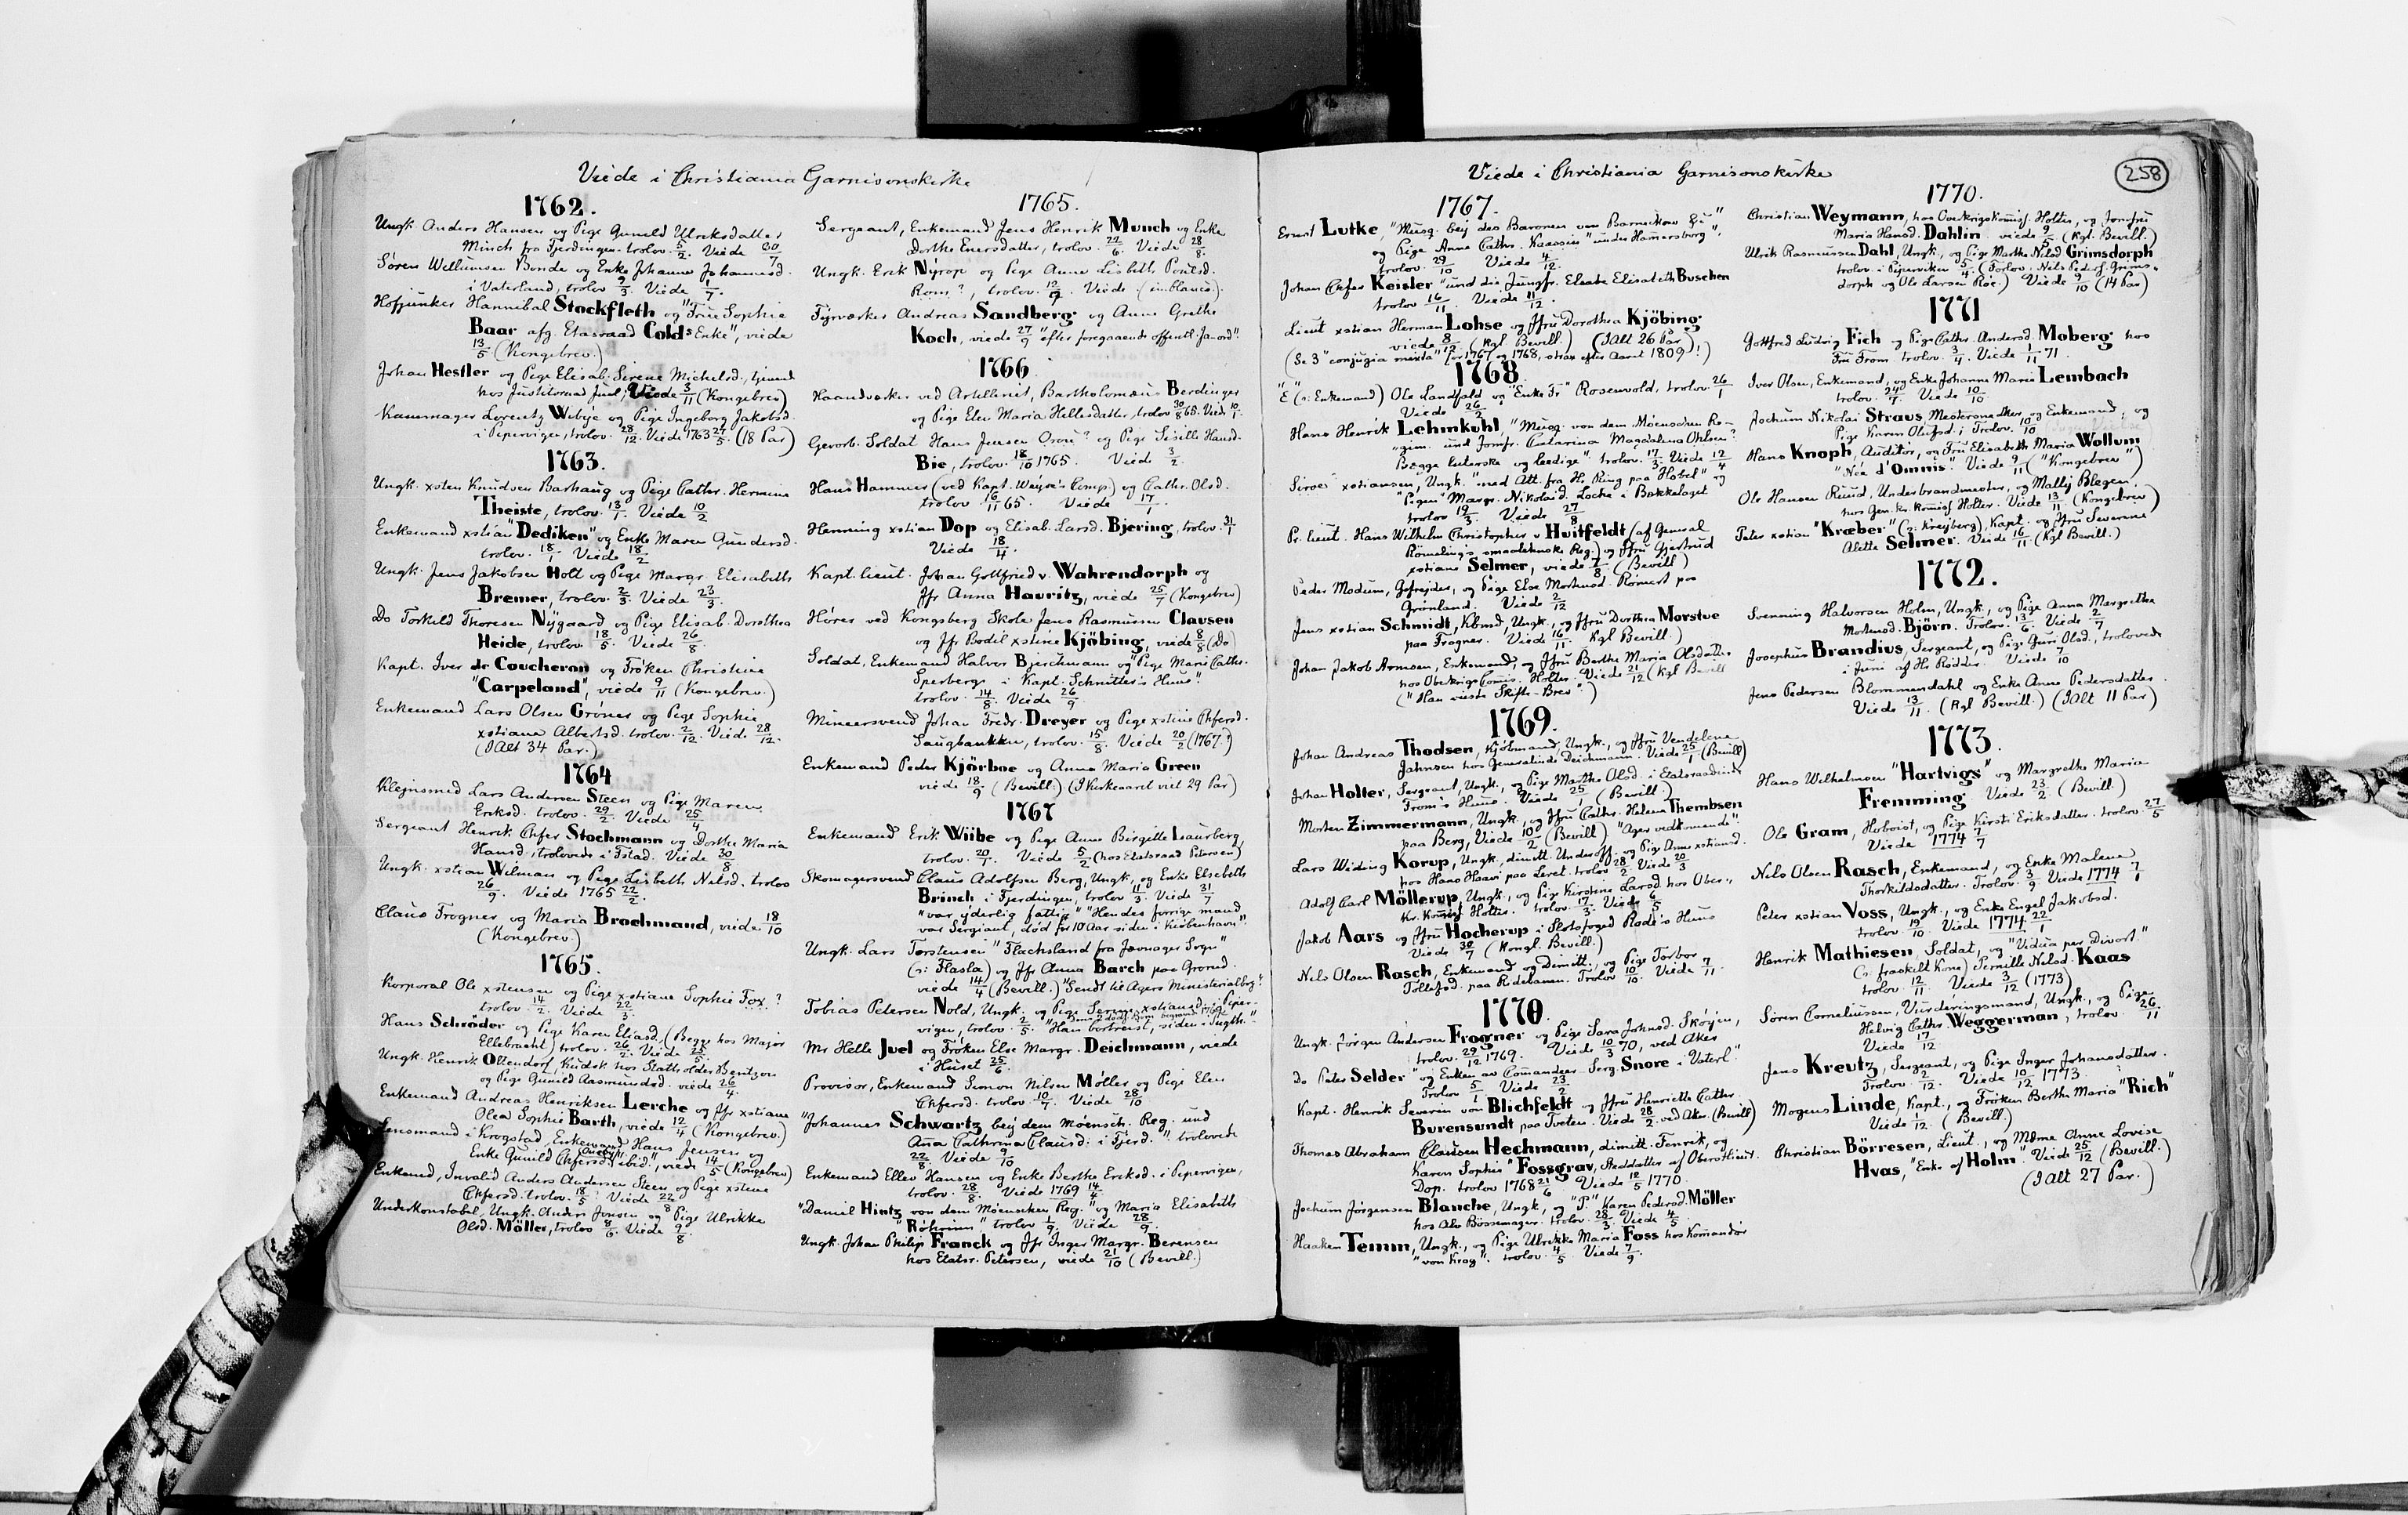 Viede i Christiania Garnisonskirke
1762.
Ungk. Anders Hansen og Pige Gunild Ulriksdatter
Münch fra Fjerdingen. trolov. 5/2. Viede 30/7
Søren Willumsen Bonde og Enke Johanne Johannesd.
i Vaterland, trolov 9/3. Viede 1/7.
Hofjunker Hannibal Stockfleth og "Frue Sophie
Baar afg. Etatsraad Colds Enke", viede
13/5 (Kongebrev.)
Johan Hesller og Pige Elisab. Sirene Michelsd., tjenend
hos Justitsraad Juel, Viede 3/11 (Kongebrev)
Kammager Lorentz Wibÿe og Pige Ingeborg Jakobsd.
i Pipervigen, trolov. 28/12. Viede 1763 27/5. (18 Par)
1763.
Ungk. xsten Knudsen Barhaug og Pige Cathr. Hermine
Theiste, trolov. 13/1. Viede 10/2
Enkemand xstian "Dediken" og Enke Maren Gundersd.
trolov. 18/1 Viede 18/2
Ungk. Jens Jakobsen Holt og Pige Margr. Elisabeth
Bremer, trolov. 2/3. Viede 23/3.
Do Torkild Thoresen Nÿgaard og Pige Elisab. Dorothea
Heide, trolov 18/5. Viede 26/8.
Kapt. Iver de Coucheron og Fröken Christine
"Carpeland", viede 9/11 (Kongebrev.)
Enkemand Lars Olsen Gröner og Pige Sophie
xstiane Albertsd. trolov. 2/12. Viede 28/12.
(I Alt 34 Par.)
1764
Kleinsmed Lars Andersen Steen og Pige Maren
Eriksd. trolov. 29/2 Viede 25/4
Sergeant Henrik Chfer Stochmann og Dorthe Maria
Hansd. trolovede i Fstad. Viede 30/8
Ungk. xstian Wilman og Pige Lisbeth Nilsd. trolov
26/9. Viede 1765 22/2.
Claus Frogner og Maria Brochmand, viede 18/10
(Kongebrev.)
1765.
Korporal Ole xstensen og Pige xstiane Sophie Fox?
trolov. 14/2. Viede 22/3
Hans Schröder og Pige Karen Eliasd. (Begge hos Major
Ellebracht) trolov. 26/2. Viede 25/5.
Ungk. Henrik Ottendorf, Kudsk hos Statholder Bentzon
og Pige Gunild Aasmundsd. viede 26/4.
Enkemand Andreas Henriksen Lerche og Jfr xstiane
Olea Sophie Barth, viede 12/4 (Kongebrev.)
Lensmand i Krogstad, Enkemand Hans Jensen og
Enke Gunild Chfersd. ibid.", viede 14/5 (Kongebrev)
Enkemd, Invalid Anders Andersen Steen og Pige xstine
Chfersd. trolov. 18/5? Viede 22/8
Underkonstabel, Ungk. Anders Jensen og Pige Ulrikke
Olsd. Möller, trolov 8/6. Viede 9/8.
1765.
Sergeant, Enkemand Jens Henrik Munch og Enke
Dorthe Enersdatter, trolov. 22/6. Viede 28/8.
Ungk. Erik Nÿrop og Pige Anne Lisbeth Povelsd.
Rom?, trolov. 12/9. Viede (in blanco).
Fÿrverker Andreas Sandberg og Anne Grethe
Koch, viede 27/9 "efter foregaaende offentl. Ja-ord".
1766.
Haandverker ved Artilleriet, Bartholomæus Berdinger
og Pige Elen Maria Hellesdatter, trolov 30/8 65. Viede 10/1.
Gevorb. Soldat Hans Jensen Osore? og Pige Sissille Hansd.
Bie, trolov. 18/10 1765. Viede 3/2.
Hans Hammer (ved Kapt. Weyse's Comp.) og Cathr. Olsd.
trolov. 16/11 65. Viede 17/1.
Henning xstian Dop og Elisab. Larsd. Bjering, trolov. 31/1
Viede 18/4.
Kapt. lieut. Johan Gottfried v. Wahrendorph og
Jfr Anna Hauritz, viede 25/7 (Kongebrev)
Hører ved Kongsberg Skole Jens Rasmussen Clausen
og Jfr. Bodil xstine Kjöbing, viede 8/8 (Do)
Soldat, Enkemand Halvor Bjerchmann og "Pige Marie Cathr.
Sperberg i Kapt. Schnitter's Huus"
trolov. 14/8. Viede 26/9.
Mineersvend Johan Fredr. Dreyer og Pige xstine Chfersd.
Saugbanken, trolov. 15/8. Viede 20/2 (1767?)
Enkemand Peder Kjörboe og Anna Maria Green
viede 18/9 (Bevill.) (I Kirkeaaret viet 29 Par)
1767
Enkemand Erik Wiibe og Pige Anne Birgitte Laurberg
trolov. 20/1. Viede 5/2 (hos Etatsraad Petersen)
Skomagersvend Claus Adolfsen Berg, Ungk., og Enke Elsebeth
Brinch i Fjerdingen, trolov 11/3. Viede 31/7
"var ÿderlig fattig" "Hendes forrige mand
var Sergiant, död for 10 Aar siden i Kiøbenhavn".
Ungk. Lars Torstensen "Flachsland fra Jævnager Sogn"
(ɔ: Flasla) og Jfr Anna Barch paa Grorud.
viede 14/4 (Bevill.) "Sendt til Agers Ministerialbog".
Tobias Petersen Nold, Ungk. og Pige Serine xstiansd i Piper-
vigen, trolov. 2/5. "Han bortreist, siden Sugth."
Mr Helle Juel og Fröken Else Margr. Deichmann, viede
i Huset 25/6.
Provisor, Enkemand Simon Nilsen Möller og Pige Elen
Chfersd. trolov. 10/7. Viede 28/10.
"Johannes Schwartz beÿ dem Moensch. Reg. und
Aña Cathrina Clausd: i Fjerd." trolovede
22/8 Viede 9/10
Enkemand Ellev Hansen og Enke Berthe Eriksd. i Pipervigen,
trolov. 28/8. Viede 1769 14/4.
"Daniel Hintz von dem Möenschen Reg." og Maria Elisabeth
"Röhrin" trolov 1/9. Viede 28/9.
Ungk. Johan Philip Franck og Jfr Inger Margr. Berensen
hos Etatsr. Petersen, viede 21/10 (Bevill.)
Viede i Christiania Garnisonskirke
258
1767.
Ernst Lutke, "Musq. beÿ des Baronen von Barneikow Cu"
og Pige Anne Cathr. Kaassius "under Hamersborg".
trolov. 29/10 Viede 4/12.
Johan Chfer Keisler "und die Jungfr. Elsabe Elisabeth Buschen
trolov 16/11. Viede 11/12.
Lieut xstian Herman Lohse og Jfru Dorothea Kjöbing
viede 8/12. (Kgl. Bevill.) (I Alt 26 Par)
(Se 3 "conjugia mixta" for 1767 og 1768, strax efter Aaret 1809!)
1768.
"E" (ɔ: Enkemand) Ole Landfald og "Enke Fr" Rosenvold, trolov. 26/1
Viede 26/2
Hans Henrik Lehmkuhl, "Musq. von dem Möenschen Re-
"gim. und Jomfr. Catarina Magdalena Ohlsen?
Begge luterske og ledige". trolov. 17/3. Viede 12/4
Siroe? xstiansen, Ungk. "med Att. fra Hr. Ring paa Hobel" og
"Pigen" Margr. Nikolaid. Locke i Bakkelaget
trolov 19/3. Viede 27/8
Pr. lieut. Hans Wilhelm Christopher v. Huitfeldt (af General
Römeling's smaalenske Reg.) og Jfru Gjertrud
xstiane Selmer, viede 7/8 (Bevill)
Peder Modum, Gefrejder, og Pige Else Mortensd. Römert paa
Grønland. Viede 2/12
Jens xstian Schmidt, Kbmd, Ungk., og Jfru Dorothea Morstue
paa Frogner. Viede 16/11. Kgl Bevill.)
Johan Jakob Armsen, Enkemand, og Jfru Berthe Maria Olsdatter
hos Oberkrigs Comis. Holter. Viede 21/12 (Kgl Bevill
("Han viiste Skifte-Brev".)
1769.
Johan Andreas Thodsen, Kjöbmand, Ungk., og Jfru Vendelene
Jahnsen hos Generalinde Deichmann. Viede 25/1 (Bevill)
Johan Holter, Sergeant, Ungk., og Pige Marthe Olsd. i Etatsraadinde
From's Huus. Viede 25/1 (Bevill.)
Morten Zimmermann, Ungk., og Jfru Cathr. Helene Thembsen
paa Berg, Viede 10/2 (Bevill) "Ager vedkomende".
Lars Widing Korup, Ungk., dimitt. Underoff., og Pige Anne xstiansd.
hos Hans Haavi paa Leret. trolov 28/2. Viede 20/3
Adolf Carl Möllerup, Ungk., og Pige Kirstene Larsd. hos Ober-,
Kr. Komiss. Holter. trolov. 17/3. Viede 6/5
Jakob Aars og Jfru Hocherup i Slotsfoged Rode's Huus
Viede 30/7 (Kongl. Bevill.)
Nils Olsen Rasch, Enkemand og Dimitt., og Pige Torbor
Tollefsd. paa Ridebanen. Trolov 10/10. Viede 7/11.
1770.
Ungk. Jörgen Andersen Frogner og Pige Sara Johnsd. Skøjen,
trolov. 29/12 1769. Viede 10/3 70, ved Aker
Do Peter Selder "og Enken av Commandeer-Serg. Snore i Vaterl."
Trolov 5/1 Viede 23/2
Kapt. Henrik Severin von Blichfeldt og Jfru Henriette Cathr.
Burensundt paa Tveten. Viede 28/2. ved Aker. (Bevill)
Thomas Abraham Clausen Hechmann, dimitt. Fenrik, og
Karen Sophie" Fossgrav, Steddatter af Oberstlieut.
Dop. trolov 1768 21/6 Viede 18/5 1770.
Jochum Jörgensen Blanche, Ungk., og "P." Karen Pedersd. Möller
hos Ole Bössemager. trolov. 28/3. Viede 4/5
Haaken Temm, Ungk., og Pige Ulrikke Maria Foss hos Komandör
"von Krag". trolov. 4/5. Viede 7/9.
1770.
Christian Weymann, hos Overkrigskomiss. Holter, og Jomfru
Maria Hansd. Dahlin viede 9/5 (Kgl. Bevill.)
Ulrik Rasmussen Dahl, Ungk., og Pige Marthe Nilsd. Grimsdorph
trolov. i Piperviken 5/4. (Forlov. Nils Peders. Grims-
dorph og Ole Larsen Röe.) Viede 9/10 (14 Par)
1771
Gottfred Ludvig Fich og Pige Cathr. Andersd. Moberg hos
Fru From. trolov. 3/4. Viede 1/11 71.
Iver Olsen, Enkemand, og Enke Johanne Maria Lembach
trolov. 24/7. Viede 10/10
Jochum Nikolai Straus, Mestersnedker, og Enkemand, og
Pige Karen Olufsd. i Trolov. 10/10
Hans Knoph, Auditör, og Fru Elisabeth Maria Wollum
"Née d'Omnis". Viede 9/11 ("Kongebrev")
Ole Hansen Ruud, Underbrandmester, og Mallÿ Blegen,
hos Gen. kr. komiss. Holter. Viede 13/11. (Kongebrev)
Peter xstian "Kræber" (ɔ: Kreÿberg), Kapt. og Jfru Severine
Alette Selmer. Viede 16/11 (Kgl Bevill.)
1772.
Svenning Halvorsen Holm, Ungk., og Pige Anna Margrethe
Mortensd. Björn. Trolov. 13/6. Viede 2/7
Josephus Brandius, Sergeant, og Pige Guri Olsd., trolovede
i Juni af Hr. Rödder. Viede 7/10
Jens Pedersen Blommendahl og Enke Anne Pedersdatter.
Viede 13/11. (Kgl Bevill.) (I Alt 11 Par)
1773.
Hans Wilhelmsen "Hartvigs" og Margrethe Maria
Fremming Viede 23/2. (Bevill.)
Ole Gram, Hoboist, og Pige Kirsti Eriksdatter. trolov. 27/5
Viede 1774 7/7
Nils Olsen Rasch, Enkemand, og Enke Malene
Thorkildsdatter. Trolov. 3/9 Viede 1774 7/1
Peter xstian Voss, Ungk., og Enke Engel Jakobsd.
trolov. 19/10. Viede 1774 22/1
Henrik Mathiesen, Soldat, og "Vidua per Divort."
(ɔ: fraskilt Kone) Pernille Nilsd. Kaas
trolov. 12/11. Viede 3/12 (1773)
Sören Corneliussen, Vurderingsmand, Ungk., og Pige
Helvig Cathr. Weggerman, trolov. 26/11
Viede 17/12
Jens Kreutz, Sergeant, og Pige Inger Johansdatter.
Trolov. 2/12. Viede 10/12 1773.
Mogens Linde, Kapt., og Fröken Berthe Maria "Rich"
Viede 1/12. (Bevill.)
Christian Börresen, Lieut., og Mdme Anne Lovise
Hvas, "Enke af Holm". Viede 25/12 (Bevill.)
(I Alt 27 Par.)